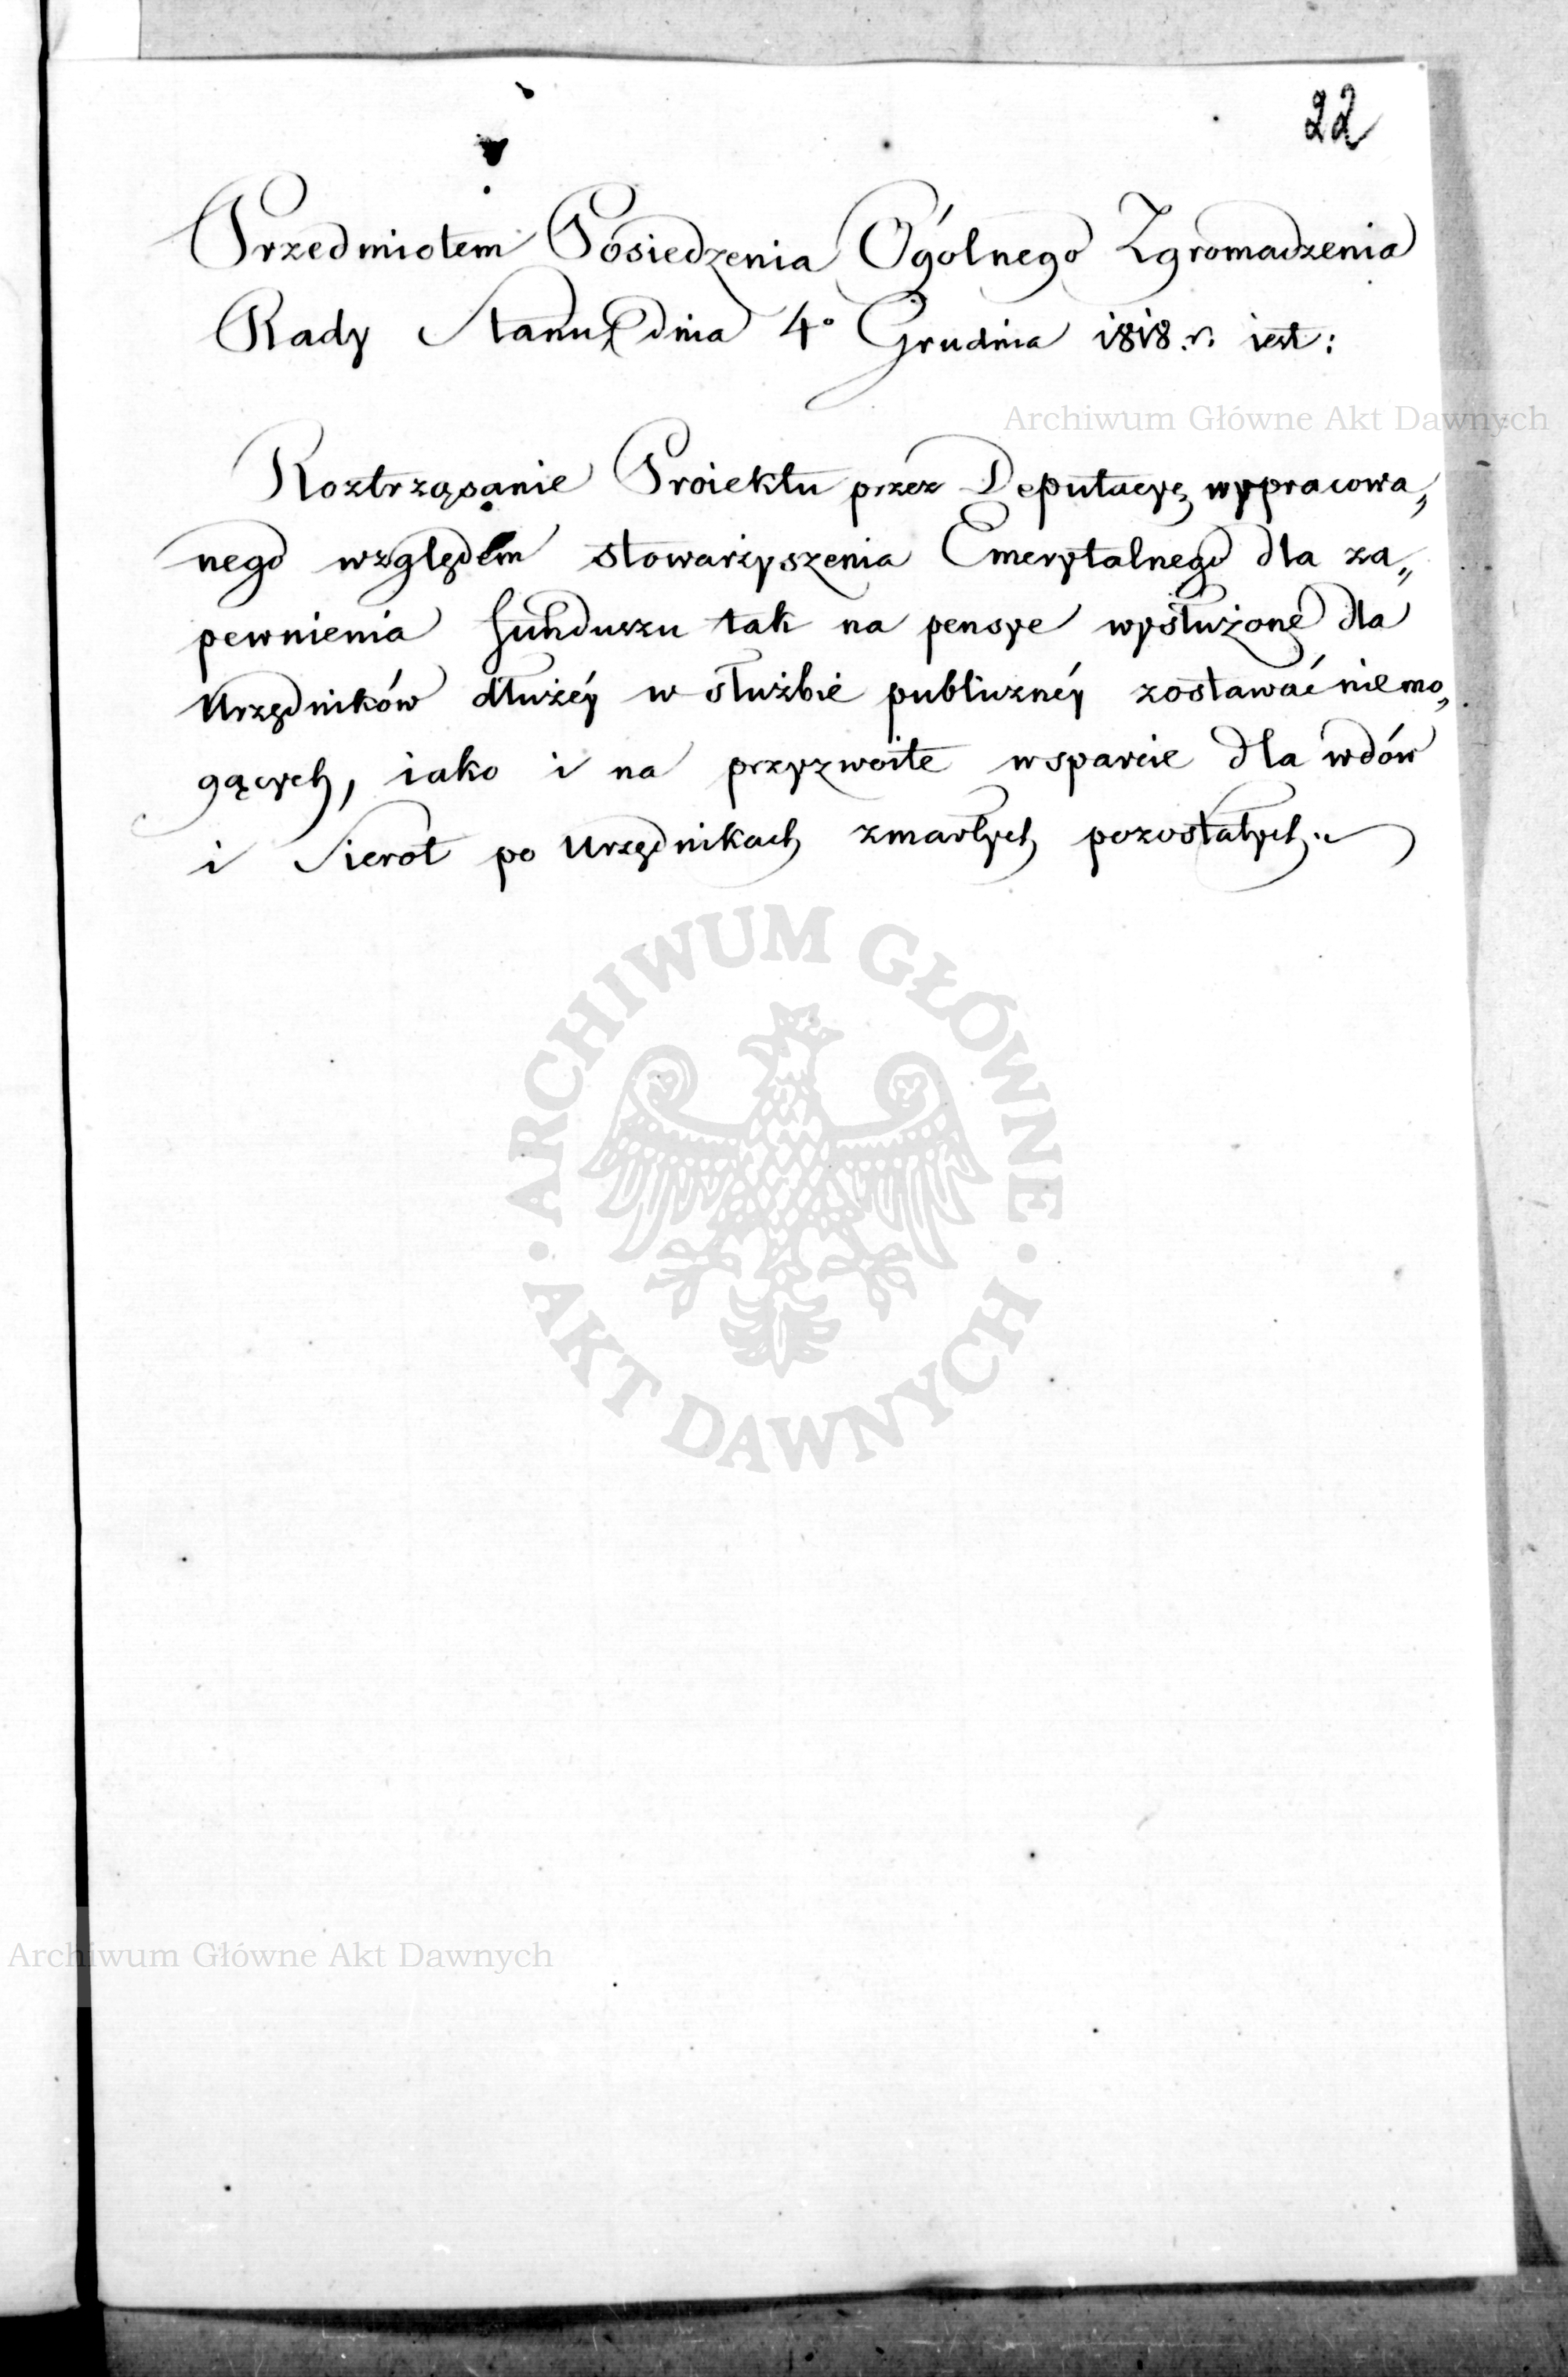 22
Przedmiotem Posiedzenia Ogólnego Zgromadzenia
Rady Stanu dnia 4º Grudnia 1818. r. iest:
Archiwum Główne Akt Dawnych
Roztrząsanie Proiektu przez Deputacyę wypracowa„
nego względem stowarzyszenia Emerytalnego dla za„
pewnienia funduszu tak na pensye wysłużone dla
Urzędników dłużéy w służbie publicznéy zostawać niemo„
gących, iako i na przyzwoite wsparcie dla wdów
i Sierot po Urzędnikach zmarłych pozostałych.
ARCHIWUM GŁÓWNE
AKT DAWNYCH
Archiwum Główne Akt Dawnych